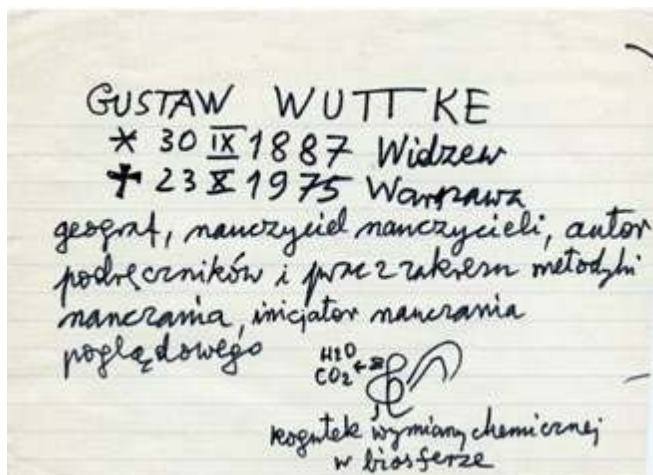 GUSTAW WUTTKE
* 30 IX 1887 Widzew
✝ 23 X 1975 Warszawa
geograf, nauczyciel nauczycieli, autor
podręczników i prac z zakresu metodyki
nauczania, inicjator nauczania
poglądowego
H2O
CO2
kogutek wymiany chemicznej
w biosferze